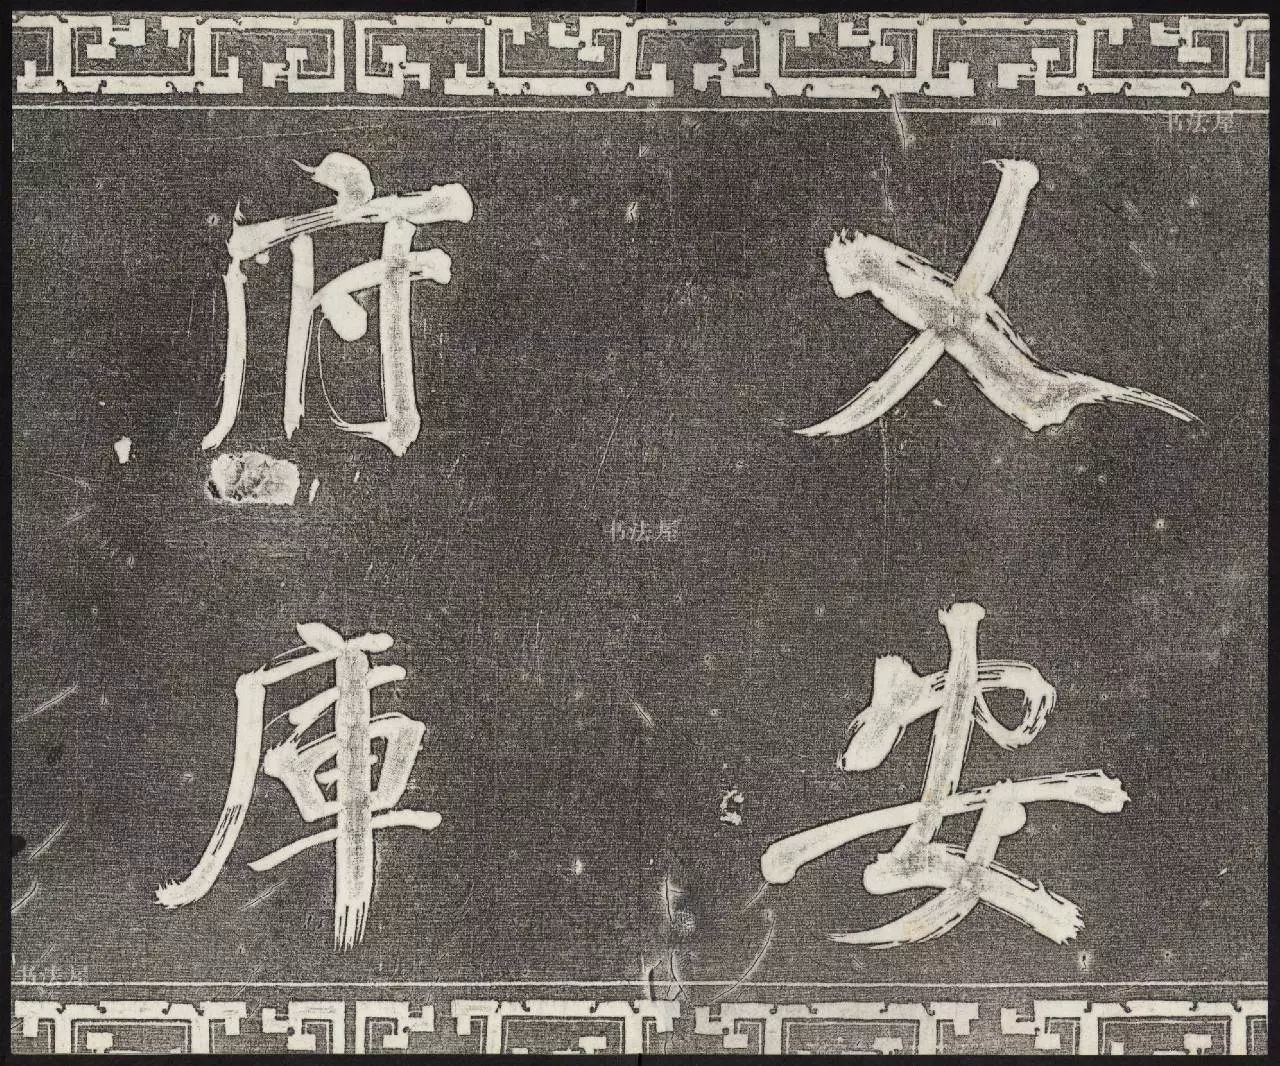 乂安
府庫
书法屋
书法屋
书法屋